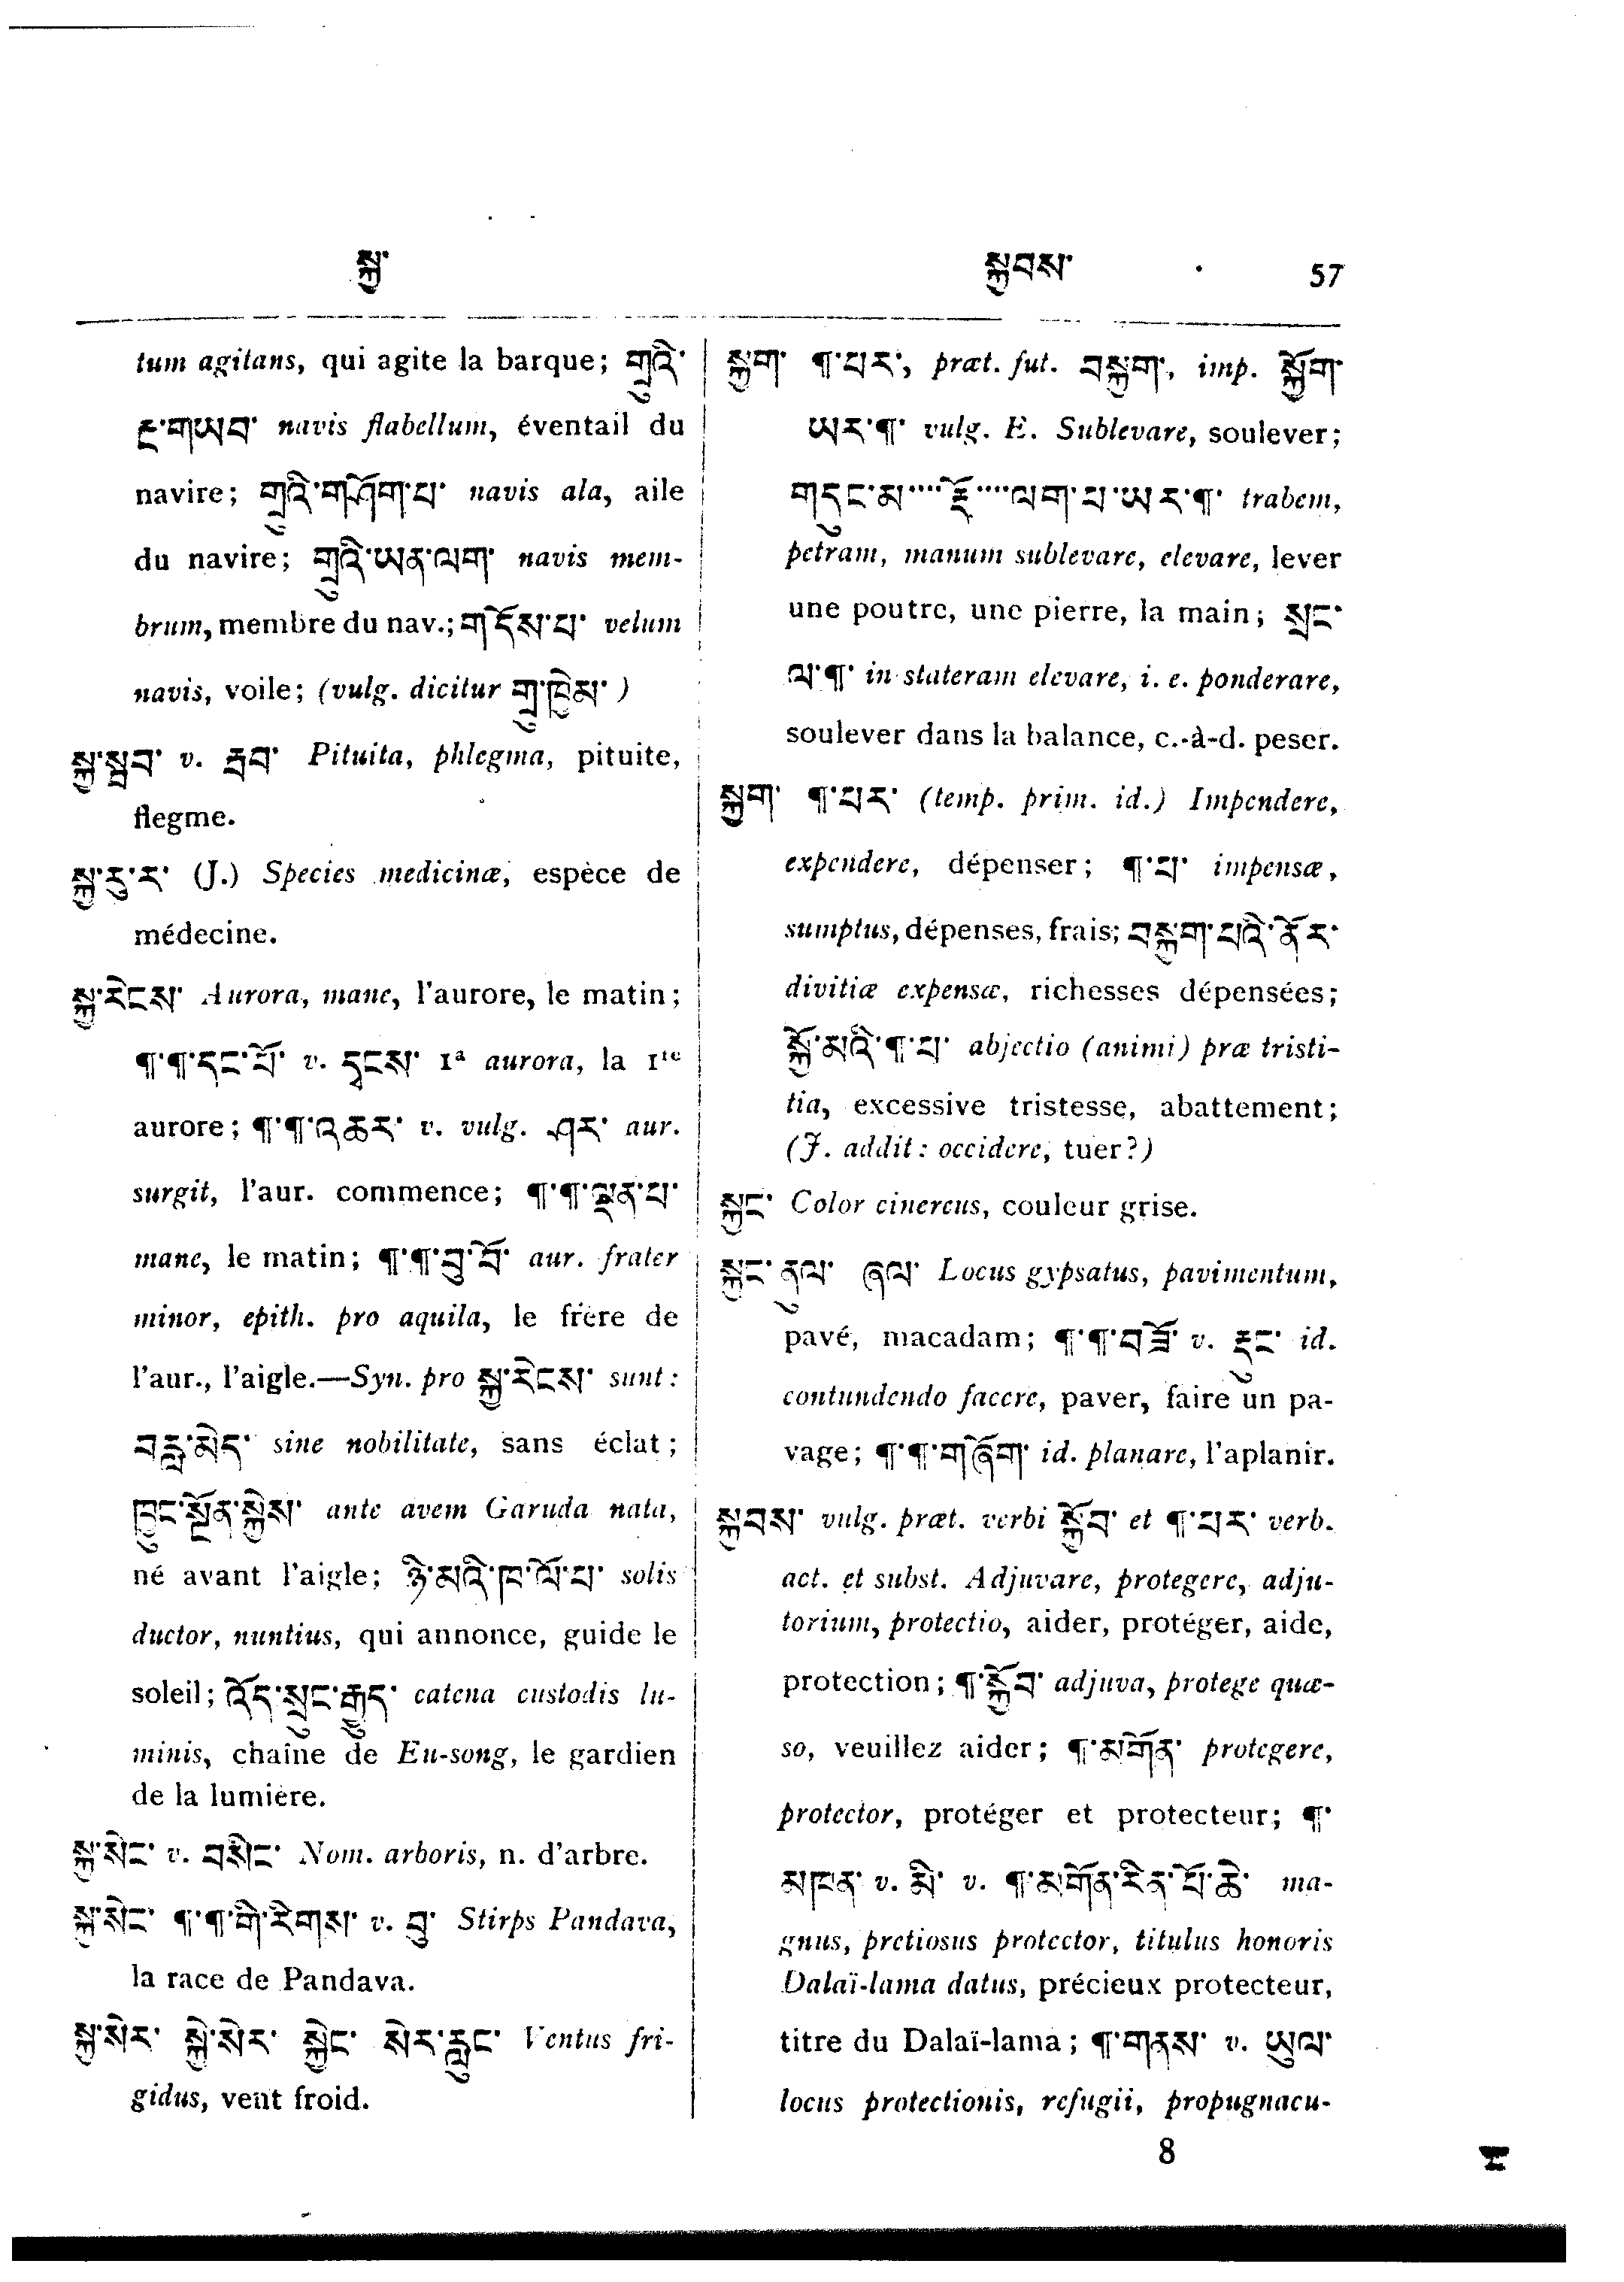 སྐྱ་
སྐྱབས་ 57
tum agitans, qui agite la barque; གྲུའི་
རྔ་གཡབ་ navis flabellum, éventail du
navire; གྲུའི་གཤོག་པ་ navis ala, aile
du navire; གྲུའི་ཡན་ལག་ navis mem-
brum, membre du nav.; ག་དོས་པ་ velum
navis, voile; (vulg. dicitur གྲུ་ཁྱེམ་ )
སྐྱ་སྦབ་ v. རྦབ་ Pituita, phlegma, pituite,
flegme.
སྐྱ་རུ་ར་ (J.) Species medicinæ, espèce de
médecine.
སྐྱ་རེངས་ Aurora, mane, l'aurore, le matin;
༌¶་¶་དང་པོ་ v. དྭངས་ 1ª aurora, la 1re
aurore; ¶་¶་འཆར་ v. vulg. ཤར་ aur.
surgit, l'aur. commence; ¶་¶་ལྡན་པ་
mane, le matin; ¶་¶་བུ་བོ་ aur. frater
minor, epith. pro aquila, le frère de
l'aur., l'aigle.—Syn. pro སྐྱ་རེངས་ sunt:
བརླ་མེད་ sine nobilitate, sans éclat;
ཁྱུང་སྔོན་སྐྱེས་ ante avem Garuda nata,
né avant l'aigle; ཉི་མའི་ཁ་ལོ་པ་ solis
ductor, nuntius, qui annonce, guide le
soleil; འོད་སྲུང་རྒྱུད་ catena custodis lu-
minis, chaîne de Eu-song, le gardien
de la lumière.
སྐྱ་སེང་ v. བསེང་ Nom. arboris, n. d'arbre.
སྐྱ་སེང་ ¶་¶་གི་རིགས་ v. བུ་ Stirps Pandava,
la race de Pandava.
སྐྱ་སེར་ སྐྱེ་སེར་ སྐྱེང་ སེར་རླུང་ Ventus fri-
gidus, vent froid.
སྐྱག་ ¶་པར་, præt. fut. བསྐྱག་, imp. སྐྱོག་
ཡར་¶་ vulg. E. Sublevare, soulever;
གདུང་མ་····རྡོ་····ལག་པ་ཡར་¶་ trabem,
petram, manum sublevare, elevare, lever
une poutre, une pierre, la main; སྲང་
ལ་¶་ in stateram elevare, i. e. ponderare,
soulever dans la balance, c.-à-d. peser.
སྐྱག་ ¶་པར་ (temp. prim. id.) Impendere,
expendere, dépenser; ¶་པ་ impensæ,
sumptus, dépenses, frais; བསྐྱག་པའི་ནོར་
divitiæ expensæ, richesses dépensées;
སྐྱོ་མའི་¶་པ་ abjectio (animi) præ tristi-
tia, excessive tristesse, abattement;
(J. addit: occidere, tuer?)
སྐྱང་ Color cinereus, couleur grise.
སྐྱང་ནུལ་ ཞལ་ Locus gypsatus, pavimentum,
pavé, macadam; ¶་¶་བཟོ་ v. རྡུང་ id.
contundendo facere, paver, faire un pa-
vage; ¶་¶་གཞོག་ id. planare, l'aplanir.
སྐྱབས་ vulg. præt. verbi སྐྱོབ་ et ¶་པར་ verb.
act. et subst. Adjuvare, protegere, adju-
torium, protectio, aider, protéger, aide,
protection; ¶་སྐྱོབ་ adjuva, protege quæ-
so, veuillez aider; ¶་མགོན་ protegere,
protector, protéger et protecteur; ¶་
མཁན་ v. མི་ v. ¶་མགོན་རིན་པོ་ཆེ་ ma-
gnus, pretiosus protector, titulus honoris
Dalaï-lama datus, précieux protecteur,
titre du Dalaï-lama; ¶་གནས་ v. ཡུལ་
locus protectionis, refugii, propugnacu-
8